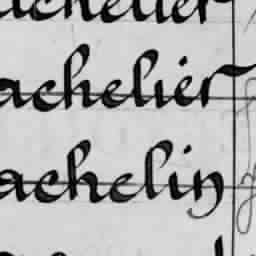 achelier
achelier
achelin